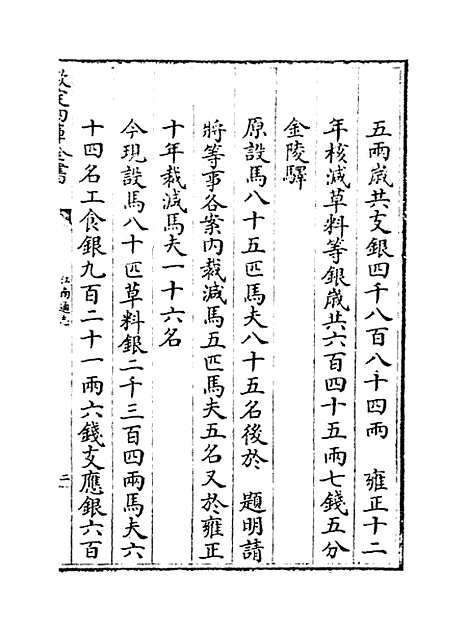 五兩歲共支銀四千八百八十四兩　雍正十二
年核減草料等銀歲共六百四十五兩七錢五分
金陵驛
原設馬八十五匹馬夫八十五名後於　題明請
將等事各案內裁減馬五匹馬夫五名又於雍正
十年裁減馬夫一十六名
今現設馬八十匹草料銀二千三百四兩馬夫六
十四名工食銀九百二十一兩六錢支應銀六百
欽定四庫全書
江南通志
二